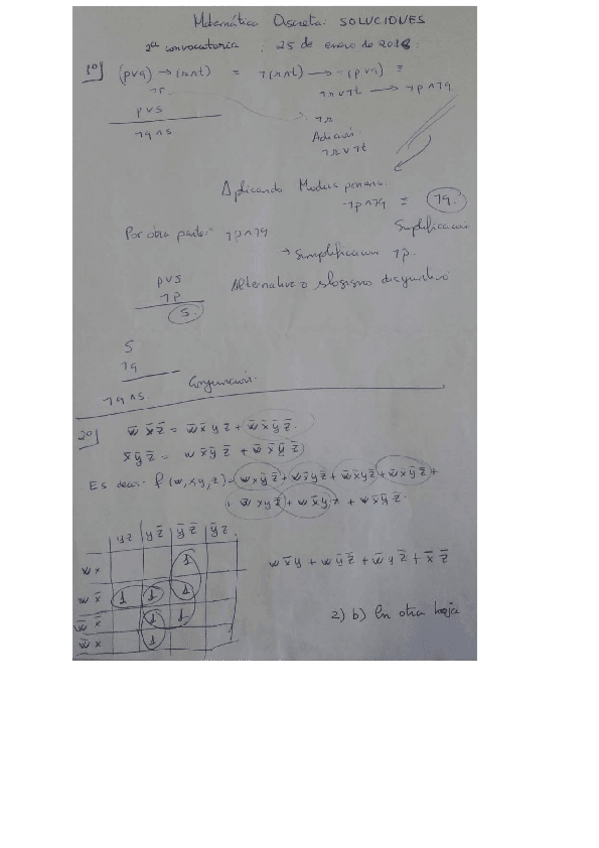 Matemática Discreta: SOLUCIONES
2ª convocatoria : 25 de enero de 2018.
1º] (p∨q) → (r∧t) ≡ ¬(r∧t) → ¬(p∨q) ≡
¬r
¬r∨¬t → ¬p∧¬q
p∨s
¬q∧s
¬r
Adición
¬r∨¬t
Aplicando Modus ponens.
¬p∧¬q ≡ ¬q.
Simplificación
Por otra parte: ¬p∧¬q
→ Simplificación ¬p.
p∨s
¬p
s.
Alternativa o silogismo disyuntivo
s
¬q
¬q∧s.
Conjunción.
2º]
w̄ x̄ z̄ = w̄ x̄ y z̄ + w̄ x̄ ȳ z̄.
x̄ ȳ z̄ = w x̄ ȳ z̄ + w̄ x̄ ȳ z̄
Es decir: f (w, x, y, z) =
yz yz̄ ȳz̄ ȳz
wx 1
wx̄ 1 1 1
w̄x̄ 1 1
w̄x 1
w x̄ y + w ȳ z̄ + w̄ y z̄ + x̄ z̄
2) b) En otra hoja